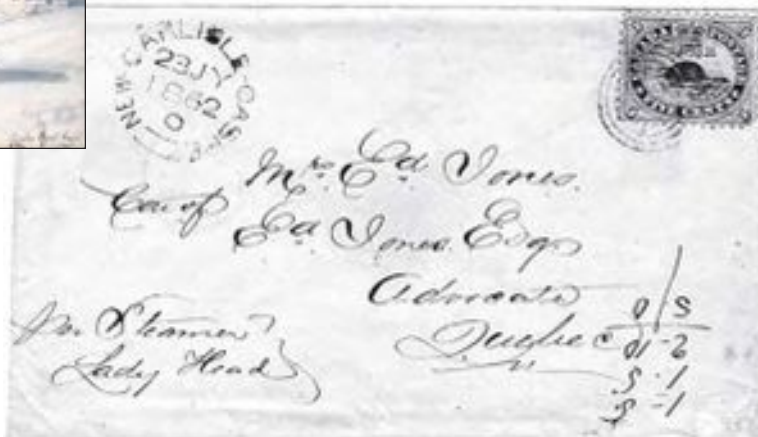 NEW CARLISLE GAS
23 JY
1862
Mrs. Ed. Jones.
Care of
Ed. Jones. Esq
Advocate
Quebec
per Steamer
Lady Head
FIVE CENTS